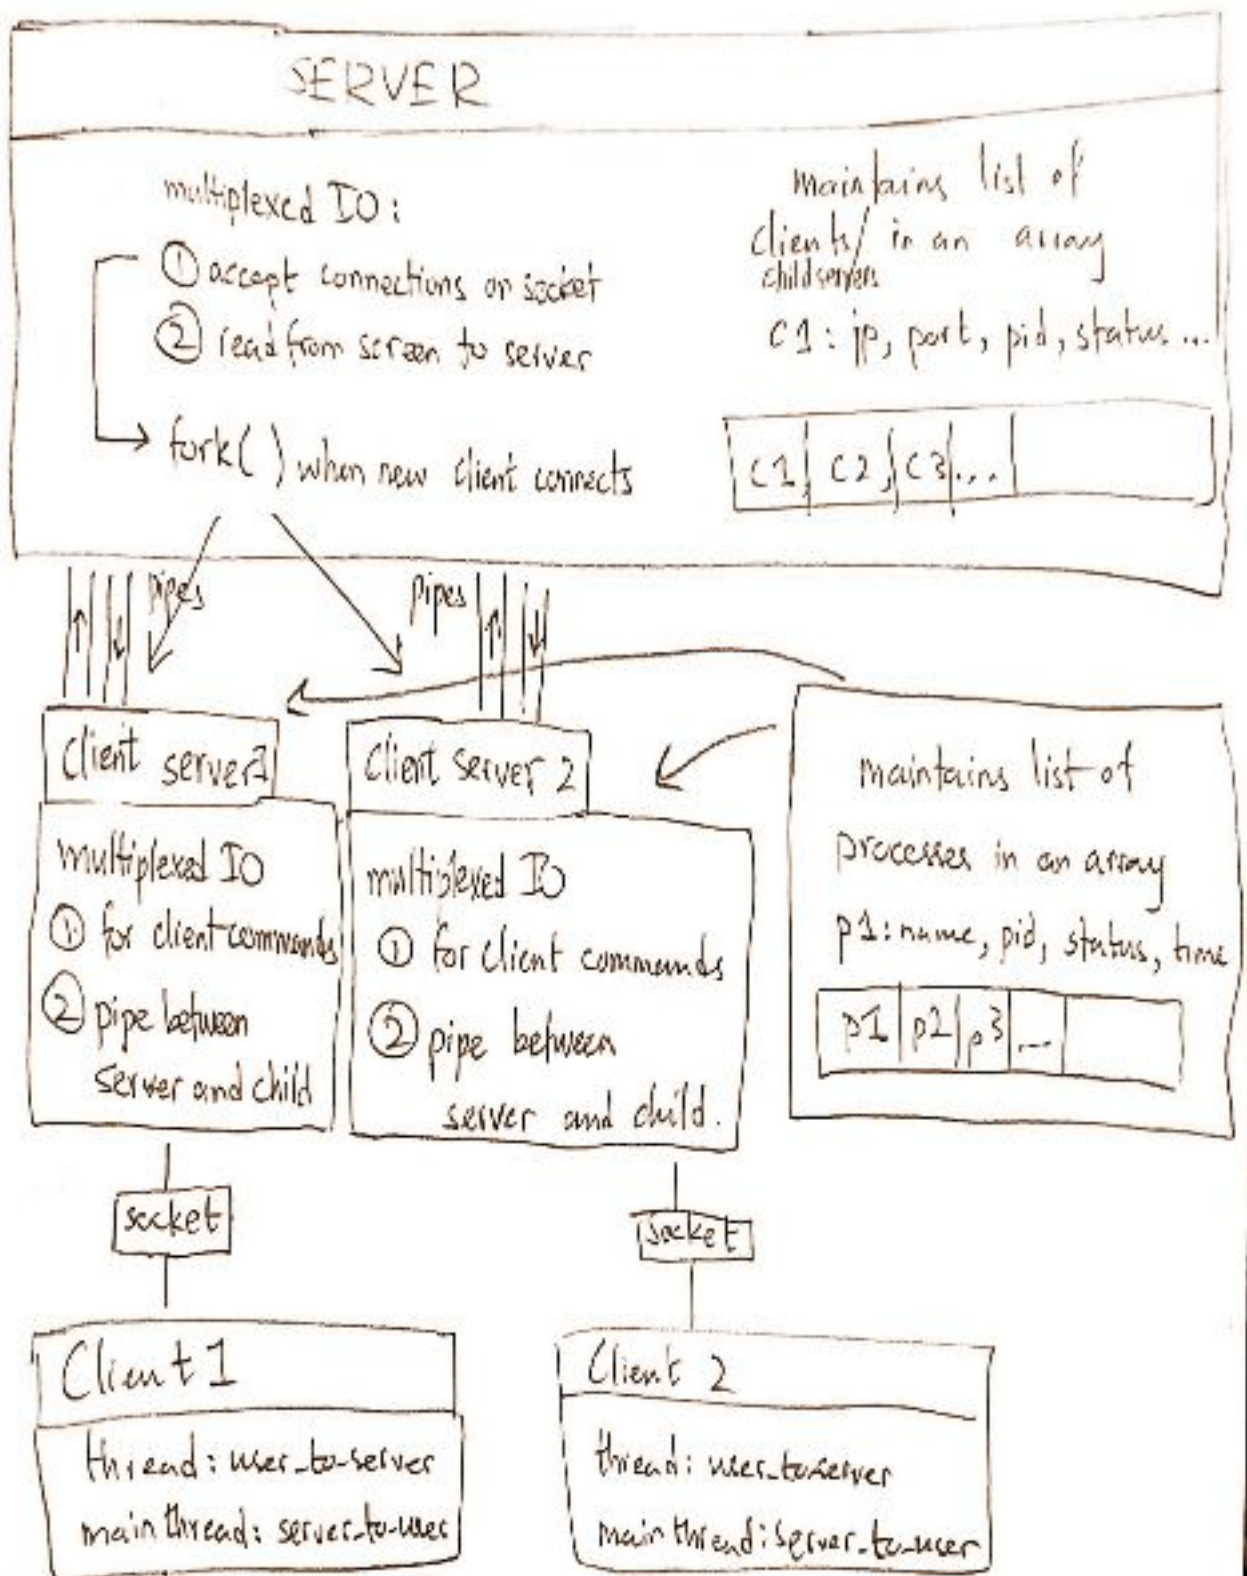 SERVER
multiplexed IO:
① accept connections on socket
② read from screen to server
fork( ) when new client connects
maintains list of
clients/ in an array
child servers
c1: ip, port, pid, status ...
c1, c2, c3 ...
pipes
pipes
Client server1
multiplexed IO
① for client commands
② pipe between
server and child
Client server 2
multiplexed IO
① for client commands
② pipe between
server and child.
maintains list of
processes in an array
p1: name, pid, status, time
p1 p2 p3 ...
socket
socket
Client 1
thread: user_to_server
main thread: server_to_user
Client 2
thread: user_to_server
main thread: server_to_user